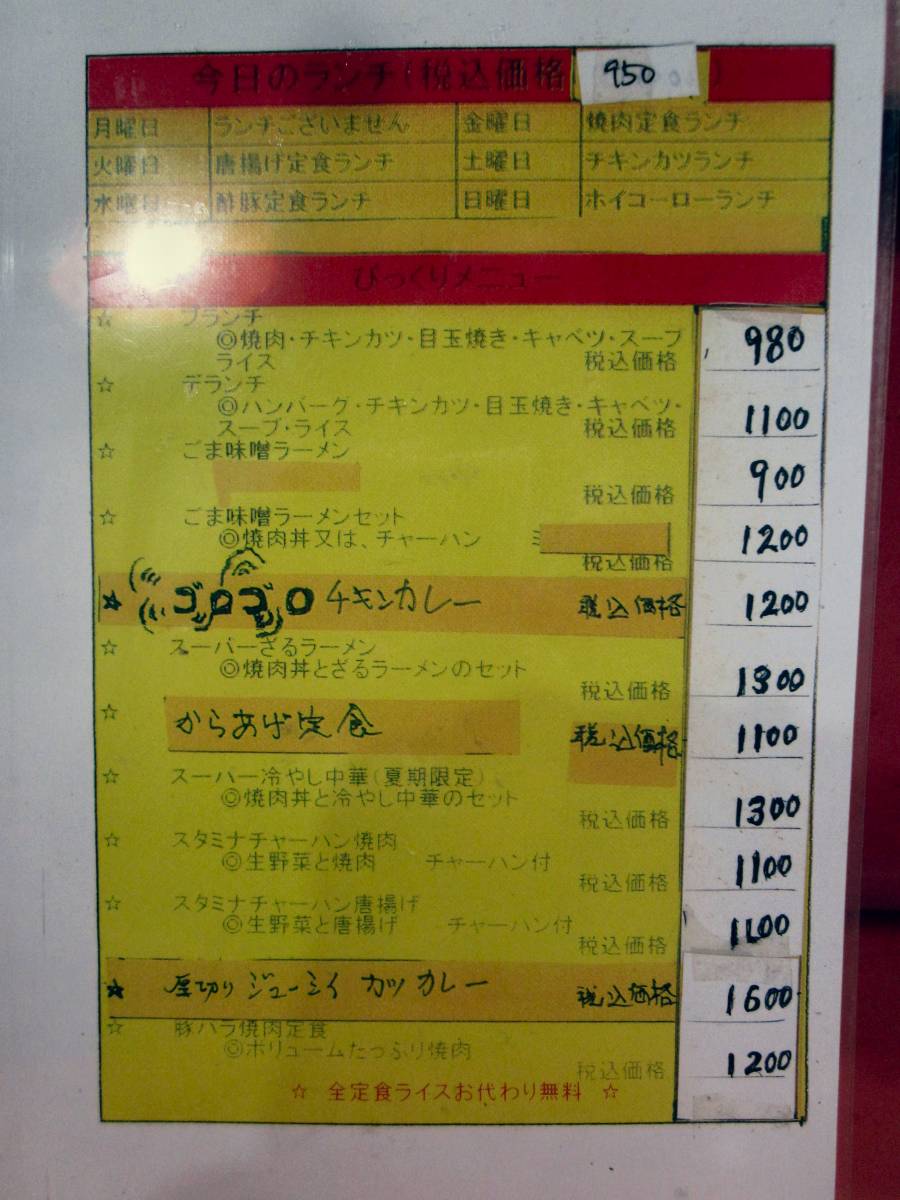 今日のランチ(税込価格 950 )
月曜日 ランチございません 金曜日 焼肉定食ランチ
火曜日 唐揚げ定食ランチ 土曜日 チキンカツランチ
水曜日 酢豚定食ランチ 日曜日 ホイコーローランチ
びっくりメニュー
☆ ブランチ
◎焼肉・チキンカツ・目玉焼き・キャベツ・スープ
ライス 税込価格 980
☆ デランチ
◎ハンバーグ・チキンカツ・目玉焼き・キャベツ・
スープ・ライス 税込価格 1100
☆ ごま味噌ラーメン
税込価格 900
☆ ごま味噌ラーメンセット
◎焼肉丼又は、チャーハン ミ
税込価格 1200
★ ゴロゴロ チキンカレー 税込価格 1200
☆ スーパーざるラーメン
◎焼肉丼とざるラーメンのセット
税込価格 1300
☆ からあげ定食 税込価格 1100
☆ スーパー冷やし中華(夏期限定)
◎焼肉丼と冷やし中華のセット
税込価格 1300
☆ スタミナチャーハン焼肉
◎生野菜と焼肉 チャーハン付
税込価格 1100
☆ スタミナチャーハン唐揚げ
◎生野菜と唐揚げ チャーハン付
税込価格 1100
★ 厚切りジューシイ カツカレー 税込価格 1600
☆ 豚バラ焼肉定食
◎ボリュームたっぷり焼肉
税込価格 1200
☆ 全定食ライスお代わり無料 ☆